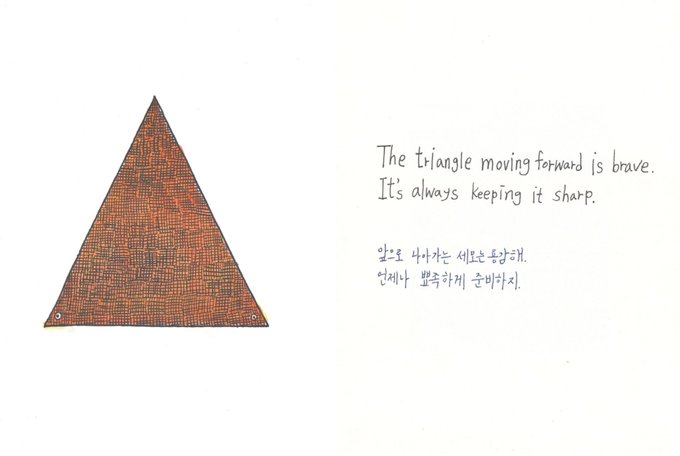 The triangle moving forward is brave.
It's always keeping it sharp.
앞으로 나아가는 세모는 용감해.
언제나 뾰족하게 준비하지.